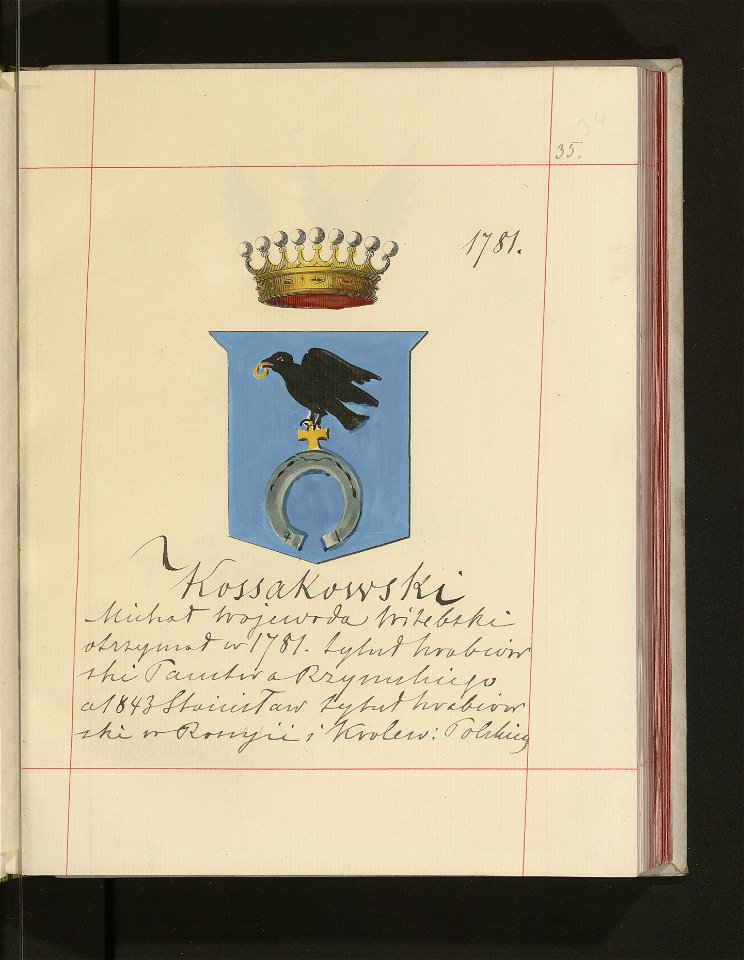 34
35.
1781.
Kossakowski
Michał Wojewoda Witebski
otrzymał w 1781. tytuł hrabiow
ski Państwa Rzymskiego
a 1843 Stanisław tytuł hrabiow
ski w Rossyii i Krolew: Polskiey